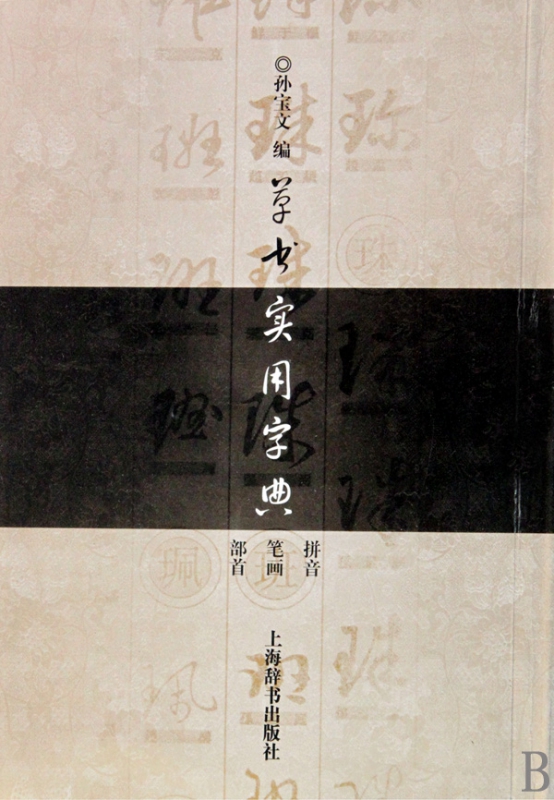 ◎孙宝文 编
草书实用字典
拼音
笔画
部首
上海辞书出版社
珠
班
珮
B